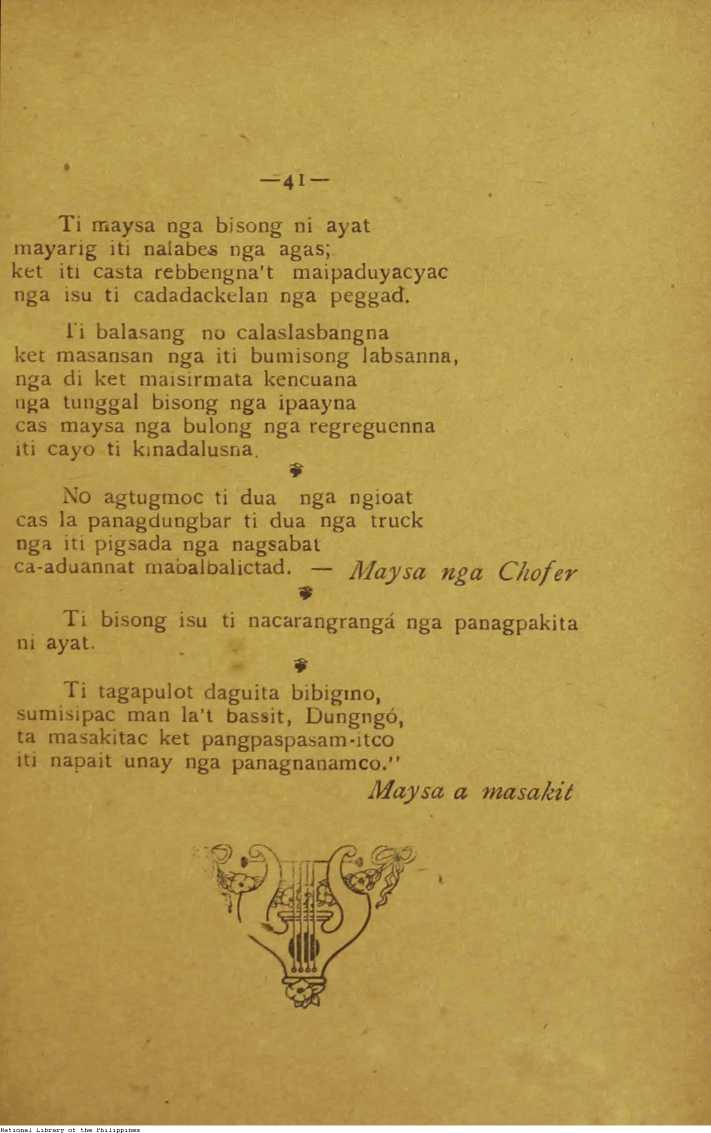 —41—
Ti maysa nga bisong ni ayat
mayarig iti nalabes nga agas;
ket iti casta rebbengna't maipaduyacyac
nga isu ti cadadackelan nga peggad.
Ti balasang no calaslasbangna
ket masansan nga iti bumisong labsanna,
nga di ket maisirmata kencuana
nga tunggal bisong nga ipaayna
cas maysa nga bulong nga regreguenna
iti cayo ti kinadalusna.
No agtugmoc ti dua nga ngioat
cas la panagdungbar ti dua nga truck
nga iti pigsada nga nagsabat
ca-aduannat mabalbalictad. — Maysa nga Chofer
Ti bisong isu ti nacarangrangá nga panagpakita
ni ayat.
Ti tagapulot daguita bibigmo,
sumisipac man la't bassit, Dungngó,
ta masakitac ket pangpaspasam-itco
iti napait unay nga panagnanamco."
Maysa a masakit
National Library of the Philippines